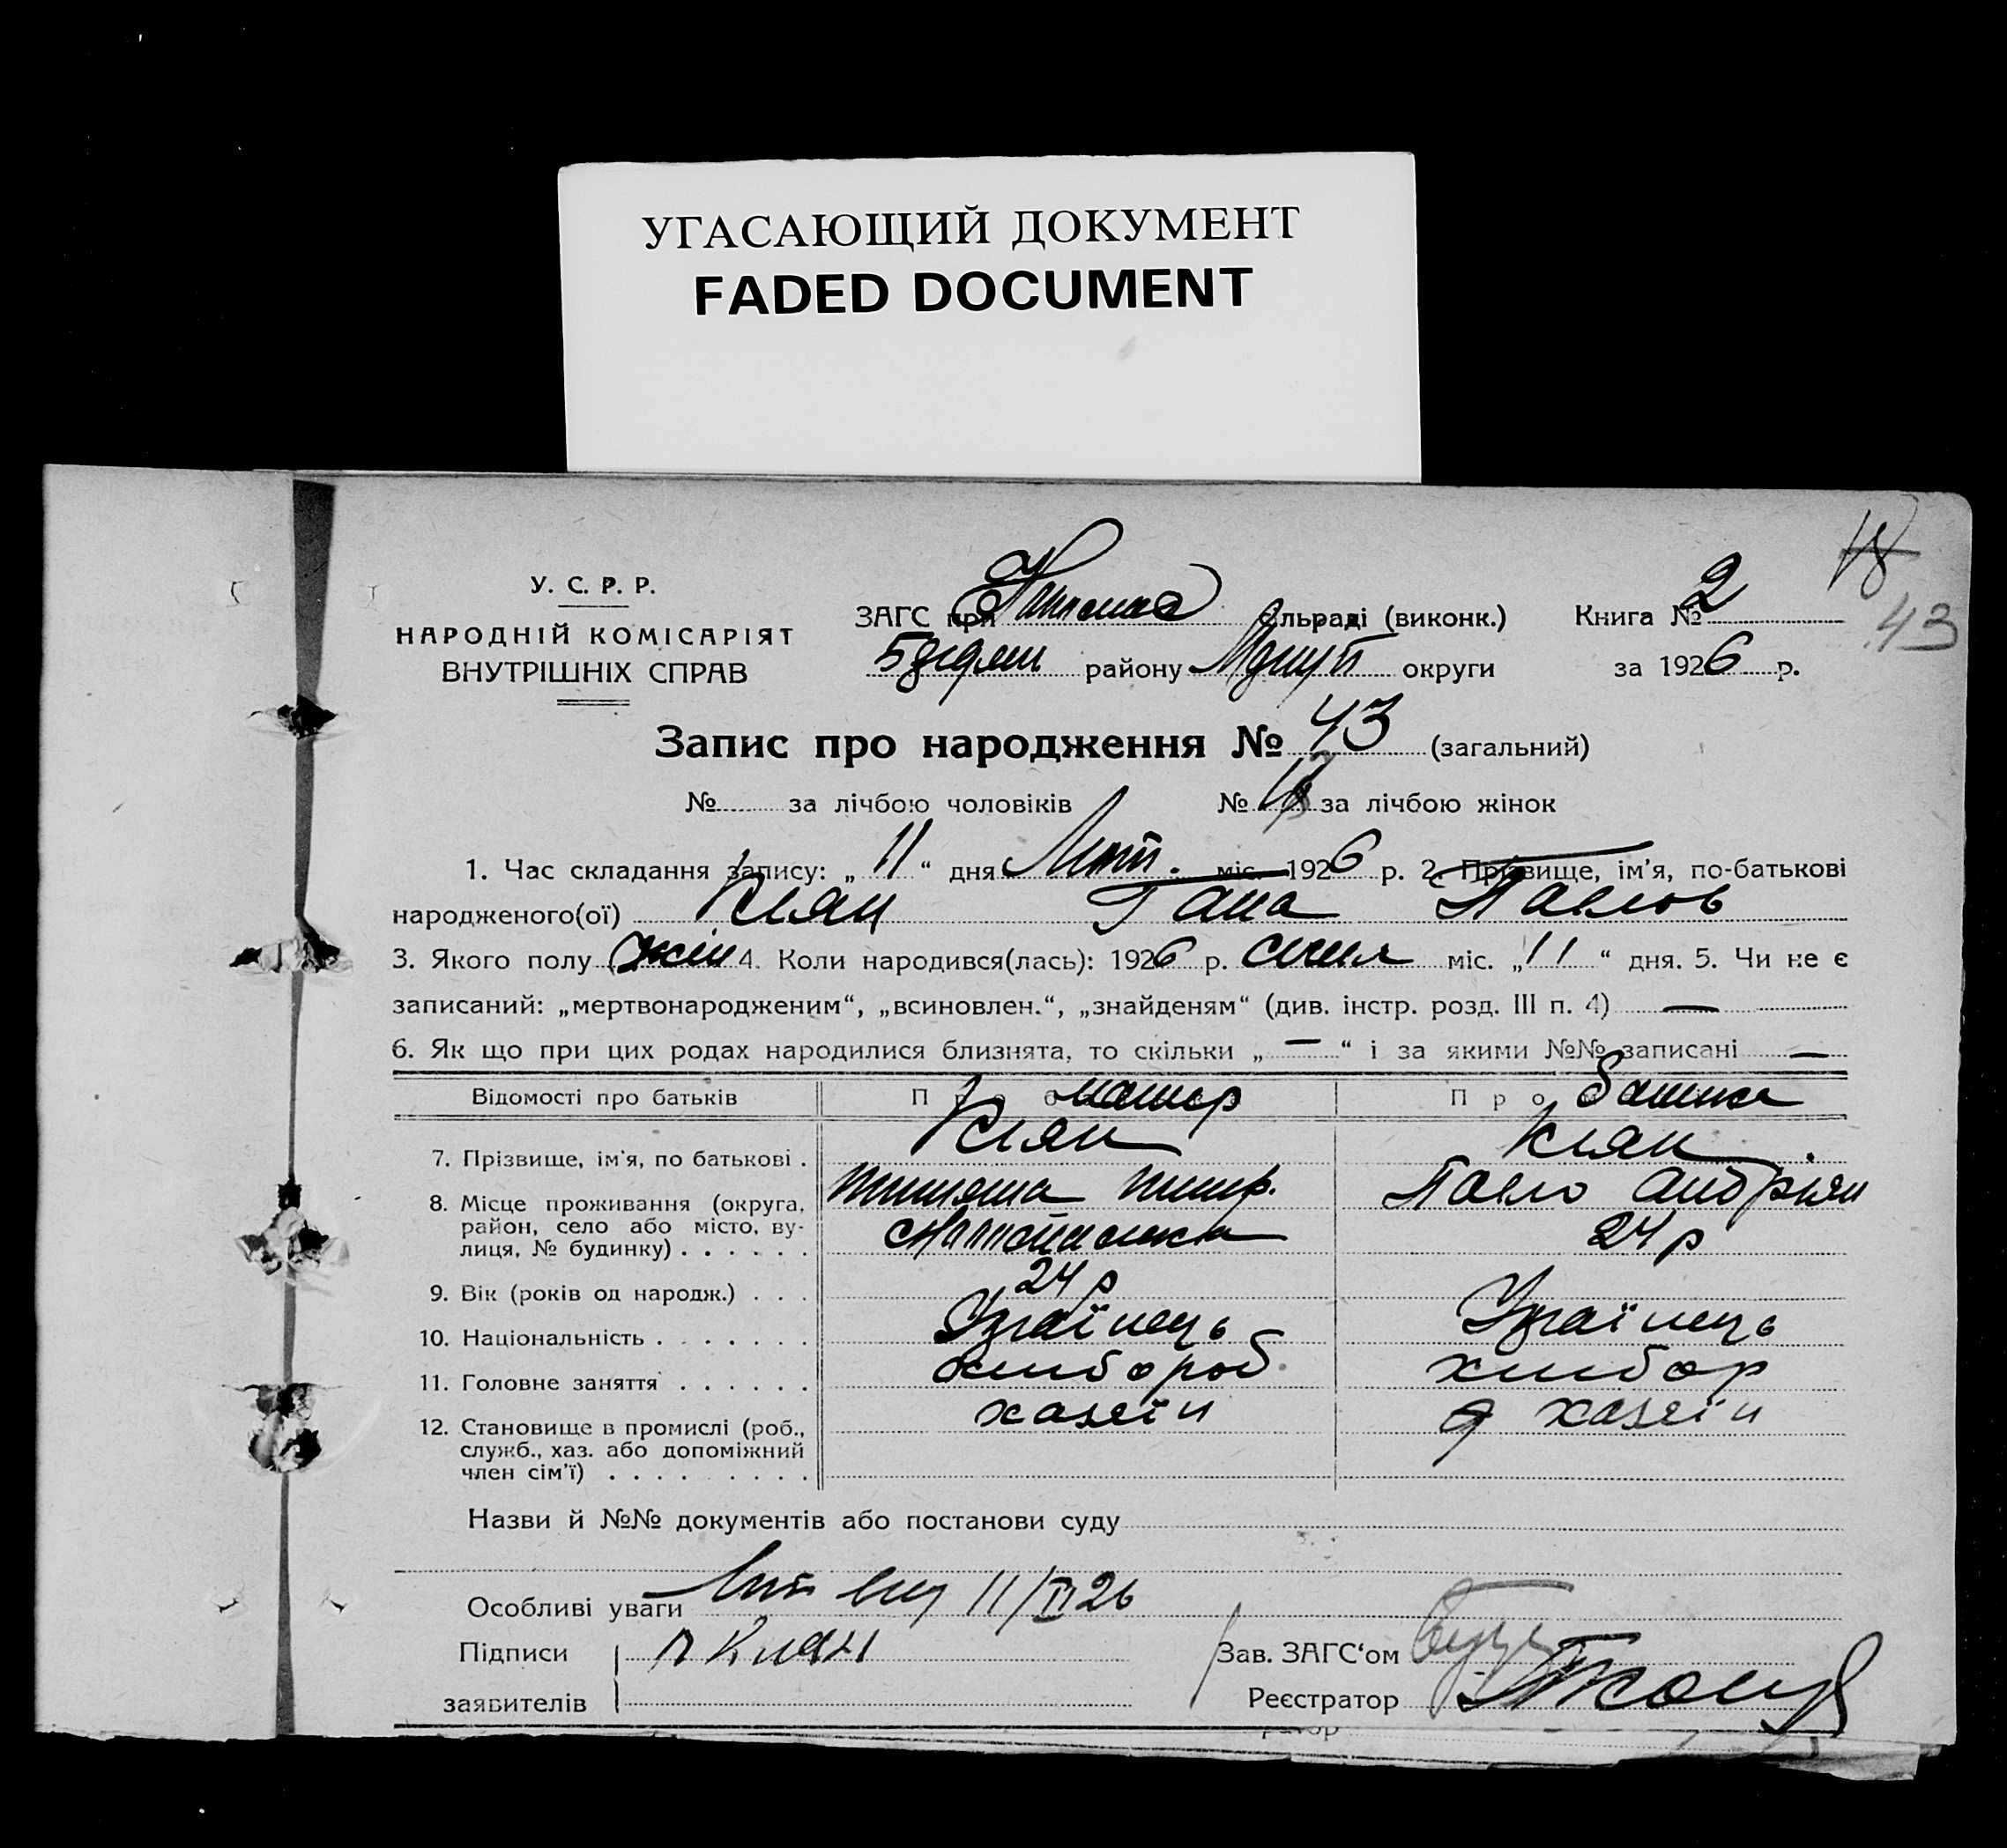 УГАСАЮЩИЙ ДОКУМЕНТ
FADED DOCUMENT
18
43
У. С. Р. Р.
НАРОДНІЙ КОМІСАРІЯТ
ВНУТРІШНІХ СПРАВ
ЗАГС при сільраді (виконк.) Книга № 2
району округи за 1926 р.
Запис про народження № 43 (загальний)
№ за лічбою чоловіків № за лічбою жінок
1. Час складання запису: „ 11 “ дня Лют. міс. 1926 р. 2. Прізвище, ім'я, по-батькові
народженого(ої) Клян Гана Павлов
3. Якого полу жін 4. Коли народився(лась): 1926 р. січня міс. „ 11 “ дня. 5. Чи не є
записаний: „мертвонародженим“, „всиновлен.“, „знайденям“ (див. інстр. розд. III п. 4) —
6. Як що при цих родах народилися близнята, то скільки „ — “ і за якими №№ записані —
Відомості про батьків Про матер Про батька
7. Прізвище, ім'я, по батькові . Клян Клян
Павло Андріян
8. Місце проживання (округа, район, село або місто, вулиця, № будинку) . . . . . . 24 р
9. Вік (років од народж.) . . . 24 р
10. Національність . . . . . . . Українець Українець
11. Головне заняття . . . . . . хлибороб. хлибор
12. Становище в промислі (роб., служб., хаз. або допоміжний член сім'ї) . . . . . . . . . хазяїн хазяїн
Назви й №№ документів або постанови суду
Особливі уваги 11/II 26
Підписи п Клян Зав. ЗАГС‘ом
заявителів Реєстратор